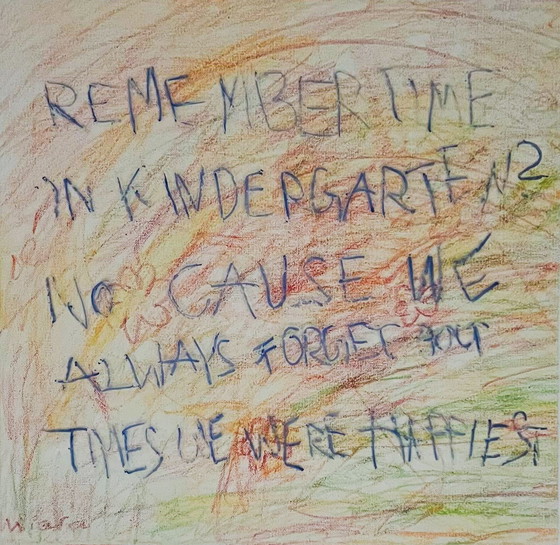 REMEMBER TIME
IN KINDERGARTEN?
NO CAUSE WE
ALWAYS FORGET
TIMES WE WERE HAPPIEST
Wiara